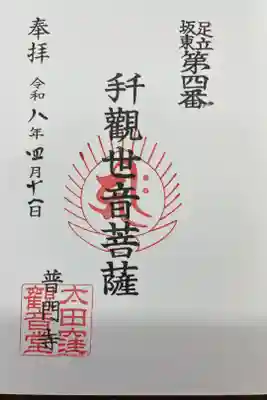 足立
坂東
第四番
千手觀世音菩薩
奉拝
令和八年四月十一日
普門寺
太田窪
觀音堂